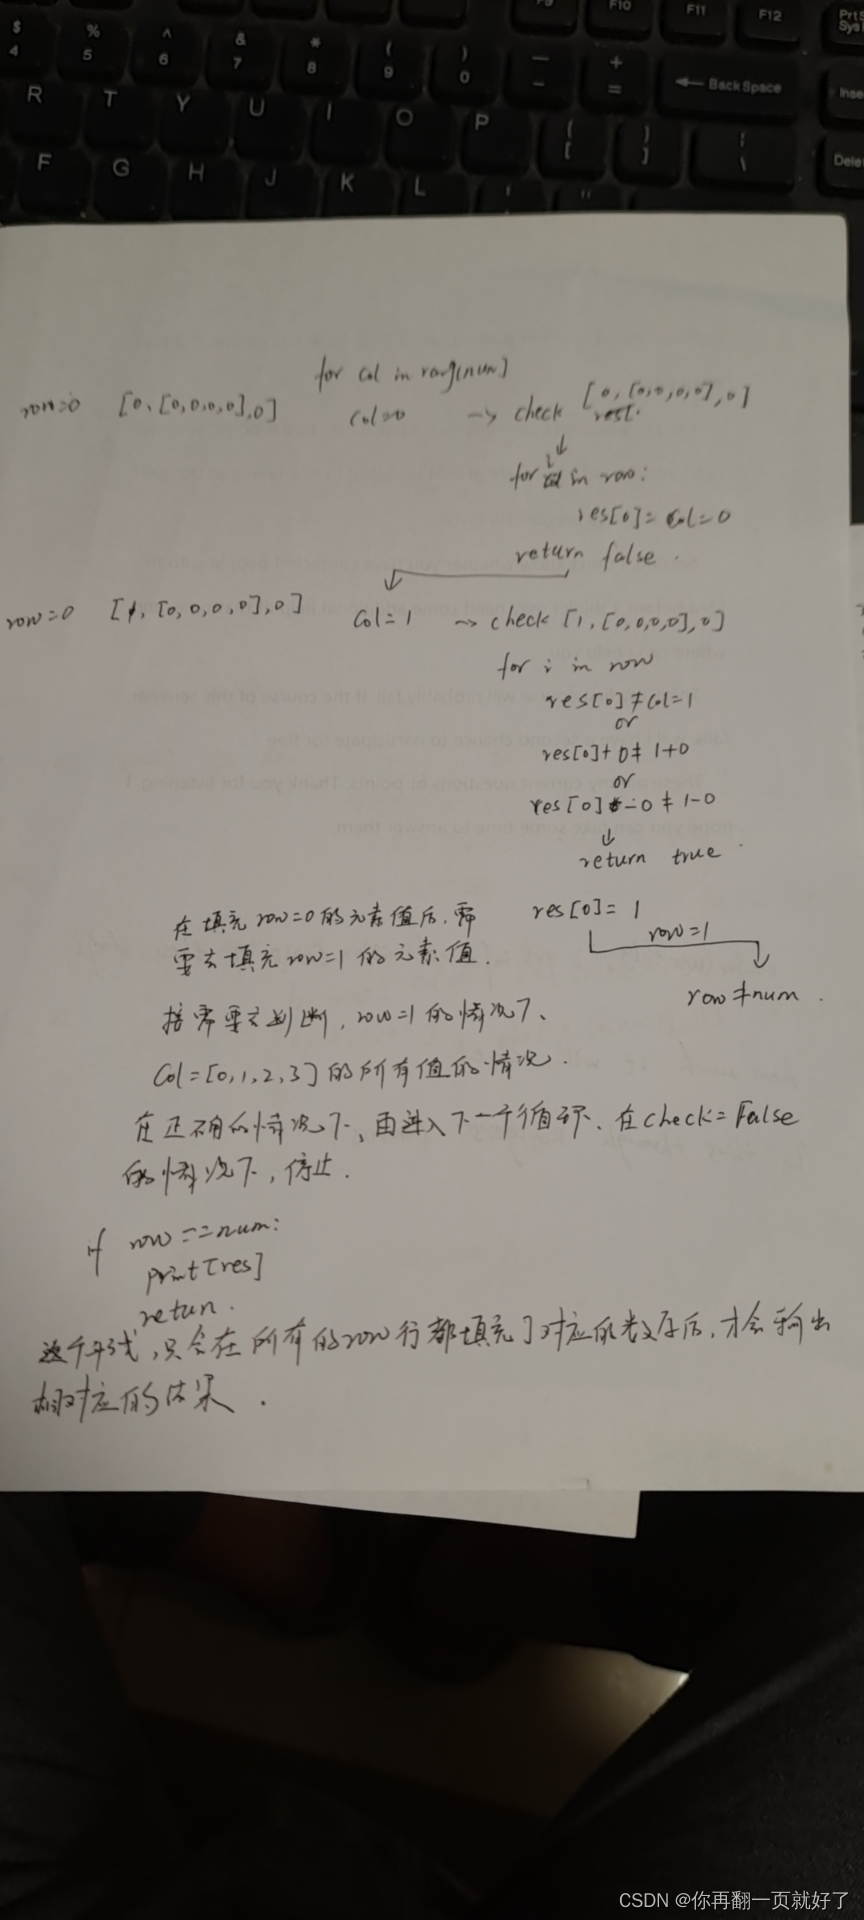 for col in rang(num)
row=0 [0, [0,0,0,0],0] col=0 → check [0, [0,0,0,0],0]
res[
for i in row:
res[0]= col=0
return false.
row=0 [1, [0,0,0,0],0] col=1 → check [1,[0,0,0,0],0]
for i in row
res[0]≠col=1
or
res[0]+0≠1+0
or
res[0]-0≠1-0
return true
res[0]=1
row=1
row≠num.
在填充row=0的元素值后,需
要去填充row=1的元素值.
接需要去判断,row=1的情况下、
Col=[0,1,2,3]的所有值的情况.
在正确的情况下,再进入下一个循环、在check=False
的情况下,停止.
if row==num:
print[res]
retun.
这个形式,只会在所有的row行都填充了对应的数字后,才会输出
相对应的结果.
$ 4 % 5 ^ 6 & 7 * 8 ( 9 ) 0 — - + = ← BackSpace
F9 F10 F11 F12 PrtS Sys
R T Y U I O P { [ } ] | \ Inse
F G H J K L Dele
CSDN @你再翻一页就好了